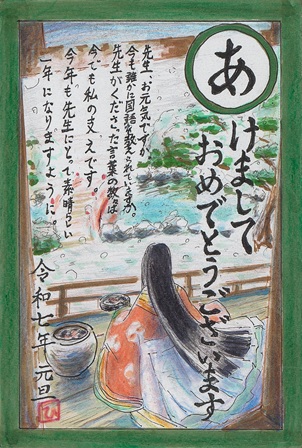 あけまして
おめでとうございます
先生、お元気ですか
今も誰かに国語を教えられていますか。
先生がくださった言葉の数々は
今でも私の支えです。
今年も先生にとって素晴らしい
一年になりますように。
令和七年 元旦